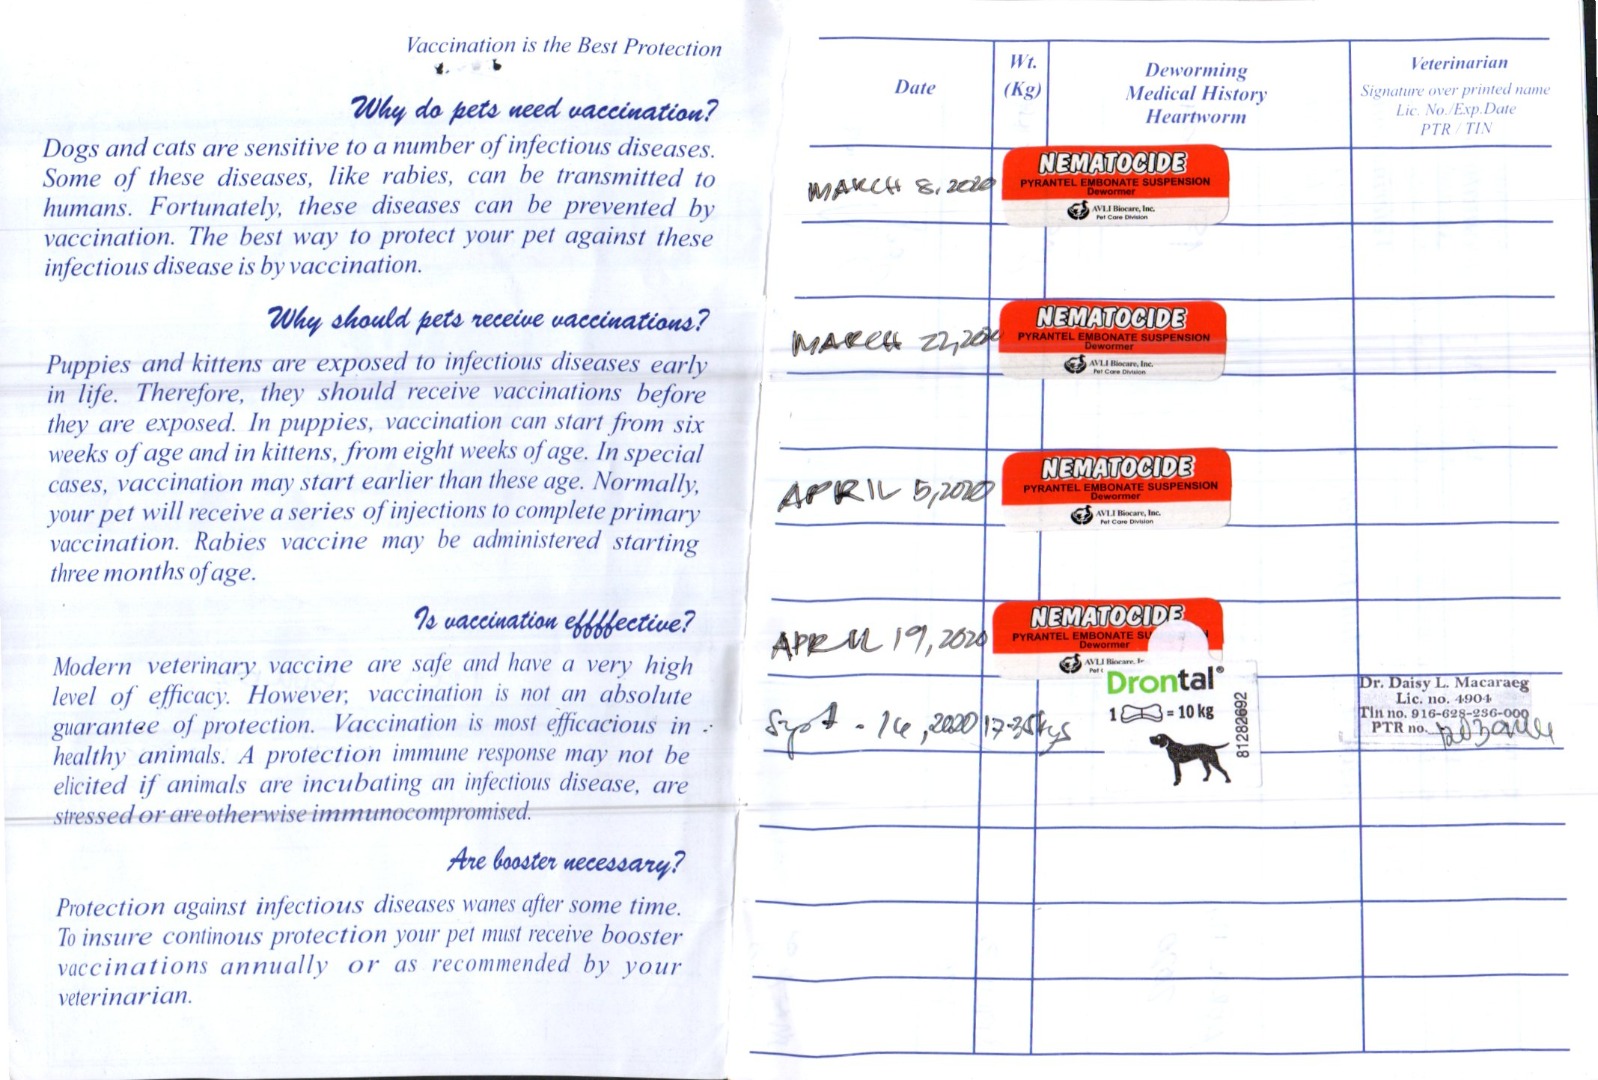 Vaccination is the Best Protection
Why do pets need vaccination?
Dogs and cats are sensitive to a number of infectious diseases.
Some of these diseases, like rabies, can be transmitted to
humans. Fortunately, these diseases can be prevented by
vaccination. The best way to protect your pet against these
infectious disease is by vaccination.
Why should pets receive vaccinations?
Puppies and kittens are exposed to infectious diseases early
in life. Therefore, they should receive vaccinations before
they are exposed. In puppies, vaccination can start from six
weeks of age and in kittens, from eight weeks of age. In special
cases, vaccination may start earlier than these age. Normally,
your pet will receive a series of injections to complete primary
vaccination. Rabies vaccine may be administered starting
three months of age.
Is vaccination effffective?
Modern veterinary vaccine are safe and have a very high
level of efficacy. However, vaccination is not an absolute
guarantee of protection. Vaccination is most efficacious in
healthy animals. A protection immune response may not be
elicited if animals are incubating an infectious disease, are
stressed or are otherwise immunocompromised.
Are booster necessary?
Protection against infectious diseases wanes after some time.
To insure continous protection your pet must receive booster
vaccinations annually or as recommended by your
veterinarian.
Date
Wt.
(Kg)
Deworming
Medical History
Heartworm
Veterinarian
Signature over printed name
Lic. No./Exp.Date
PTR / TIN
MARCH 8, 2020
NEMATOCIDE
PYRANTEL EMBONATE SUSPENSION
Dewormer
AVLI Biocare, Inc.
Pet Care Division
MARCH 22, 2020
NEMATOCIDE
PYRANTEL EMBONATE SUSPENSION
Dewormer
AVLI Biocare, Inc.
Pet Care Division
APRIL 5, 2020
NEMATOCIDE
PYRANTEL EMBONATE SUSPENSION
Dewormer
AVLI Biocare, Inc.
Pet Care Division
APRIL 19, 2020
NEMATOCIDE
PYRANTEL EMBONATE SU
Dewormer
AVLI Biocare, I
Pet C
Sept - 14, 2020
Drontal®
1 = 10 kg
81282692
Dr. Daisy L. Macaraeg
Lic. no. 4904
Tin no. 916-628-256-000
PTR no.